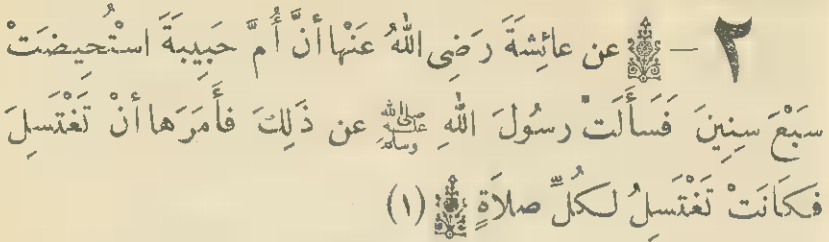 ٢ – عن عائِشةَ رَضِى اللهُ عَنْها أنَّ أُمَّ حَبِيبَةَ اسْتُحِيضَتْ
سَبْعَ سِنِينَ فَسَأَلَتْ رسُولَ اللهِ ﷺ عن ذَلِكَ فأَمَرَها أنْ تَغْتَسِلَ
فكَانَتْ تَغْتَسِلُ لكلِّ صلاَةٍ (١)